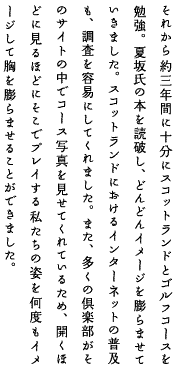 それから約三年間に十分にスコットランドとゴルフコースを
勉強。夏坂氏の本を読破し、どんどんイメージを膨らませて
いきました。スコットランドにおけるインターネットの普及
も、調査を容易にしてくれました。また、多くの倶楽部がそ
のサイトの中でコース写真を見せてくれているため、開くほ
どに見るほどにそこでプレイする私たちの姿を何度もイメ
ージして胸を膨らませることができました。